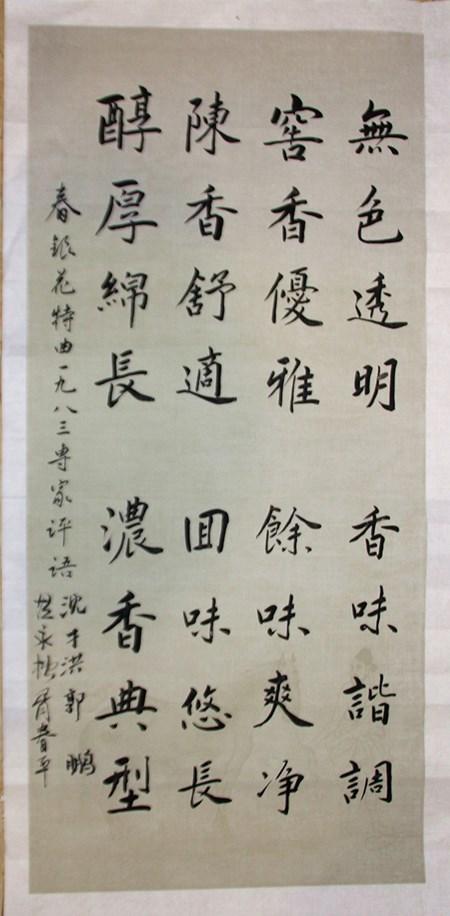 無色透明 香味諧調
窖香優雅 餘味爽净
陳香舒適 回味悠長
醇厚綿長 濃香典型
春銀花特曲一九八三專家评语
沈才洪 郭鹏